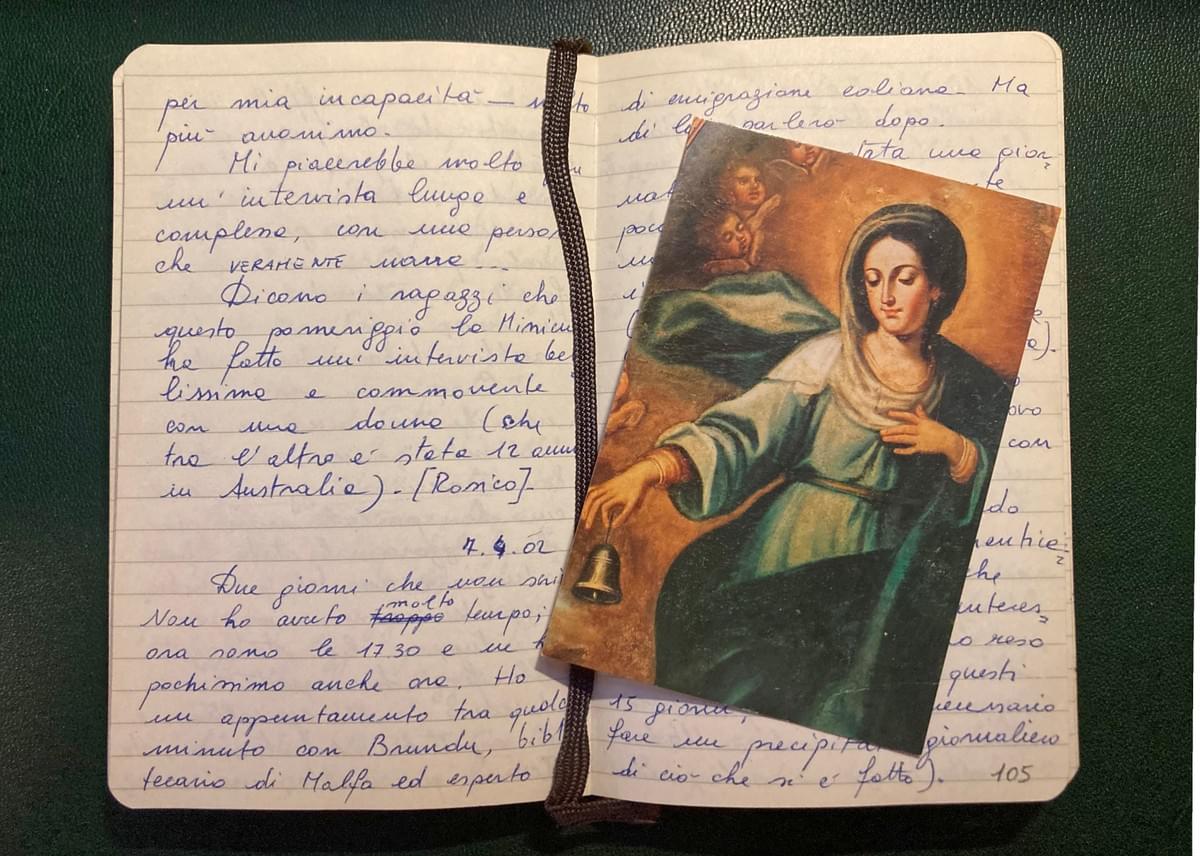 per mia incapacità — molto
più anonimo.
Mi piacerebbe molto
un' intervista lunga e
complessa, con una person
che VERAMENTE narra...
Dicono i ragazzi che
questo pomeriggio la
ha fatto un' intervista be
lissima e commovente
con una donna (che
tra l'altro è stata 12 anni
in Australia). [Rosico].
7. .02
Due giorni che non
Non ho avuto troppo molto tempo;
ora sono le 17 30 e ne h
pochissimo anche ora. Ho
un appuntamento tra qualc
minuto con Brundu, bibl
tecario di Malfa ed esperto
di emigrazione eoliana. Ma
di parlerò dopo.
una gior
poc
ovo
con
do
mentica
che
interes
o reso
questi
15 giorni,
fare un giornaliero
di ciò che si è fatto). 105